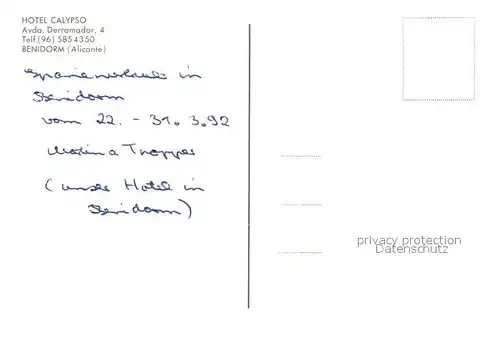 HOTEL CALYPSO
Avda. Derramador, 4
Telf.(96) 5854350
BENIDORM (Alicante)
Spanienurlaub in
Benidorm
vom 22. - 31. 3.92
(unser Hotel in
Benidorm)
privacy protection
Datenschutz